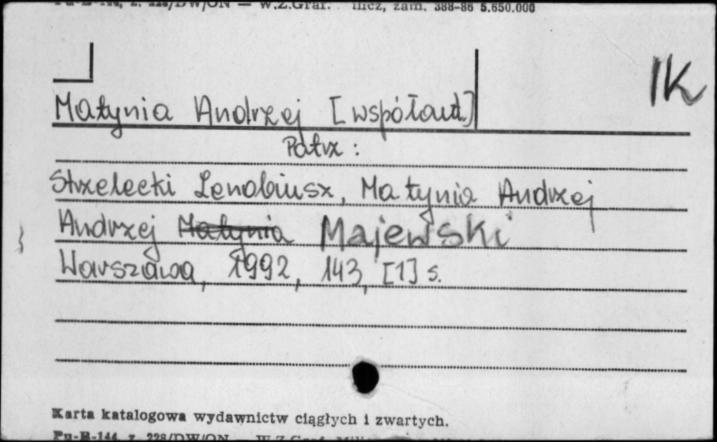 Pu-B-144, z. 228/DW/ON — W.Z.Graf. zam. 388-86 5.650.000
1K
Matynia Andrzej [współaut.]
Patrz:
Strzelecki Zenobiusz, Matynia Andrzej
Andrzej Matynia Majewski
Warszawa, 1992, 143, [1] s.
Karta katalogowa wydawnictw ciągłych i zwartych.
Pu-B-144, z. 228/DW/ON — W.Z.Graf.